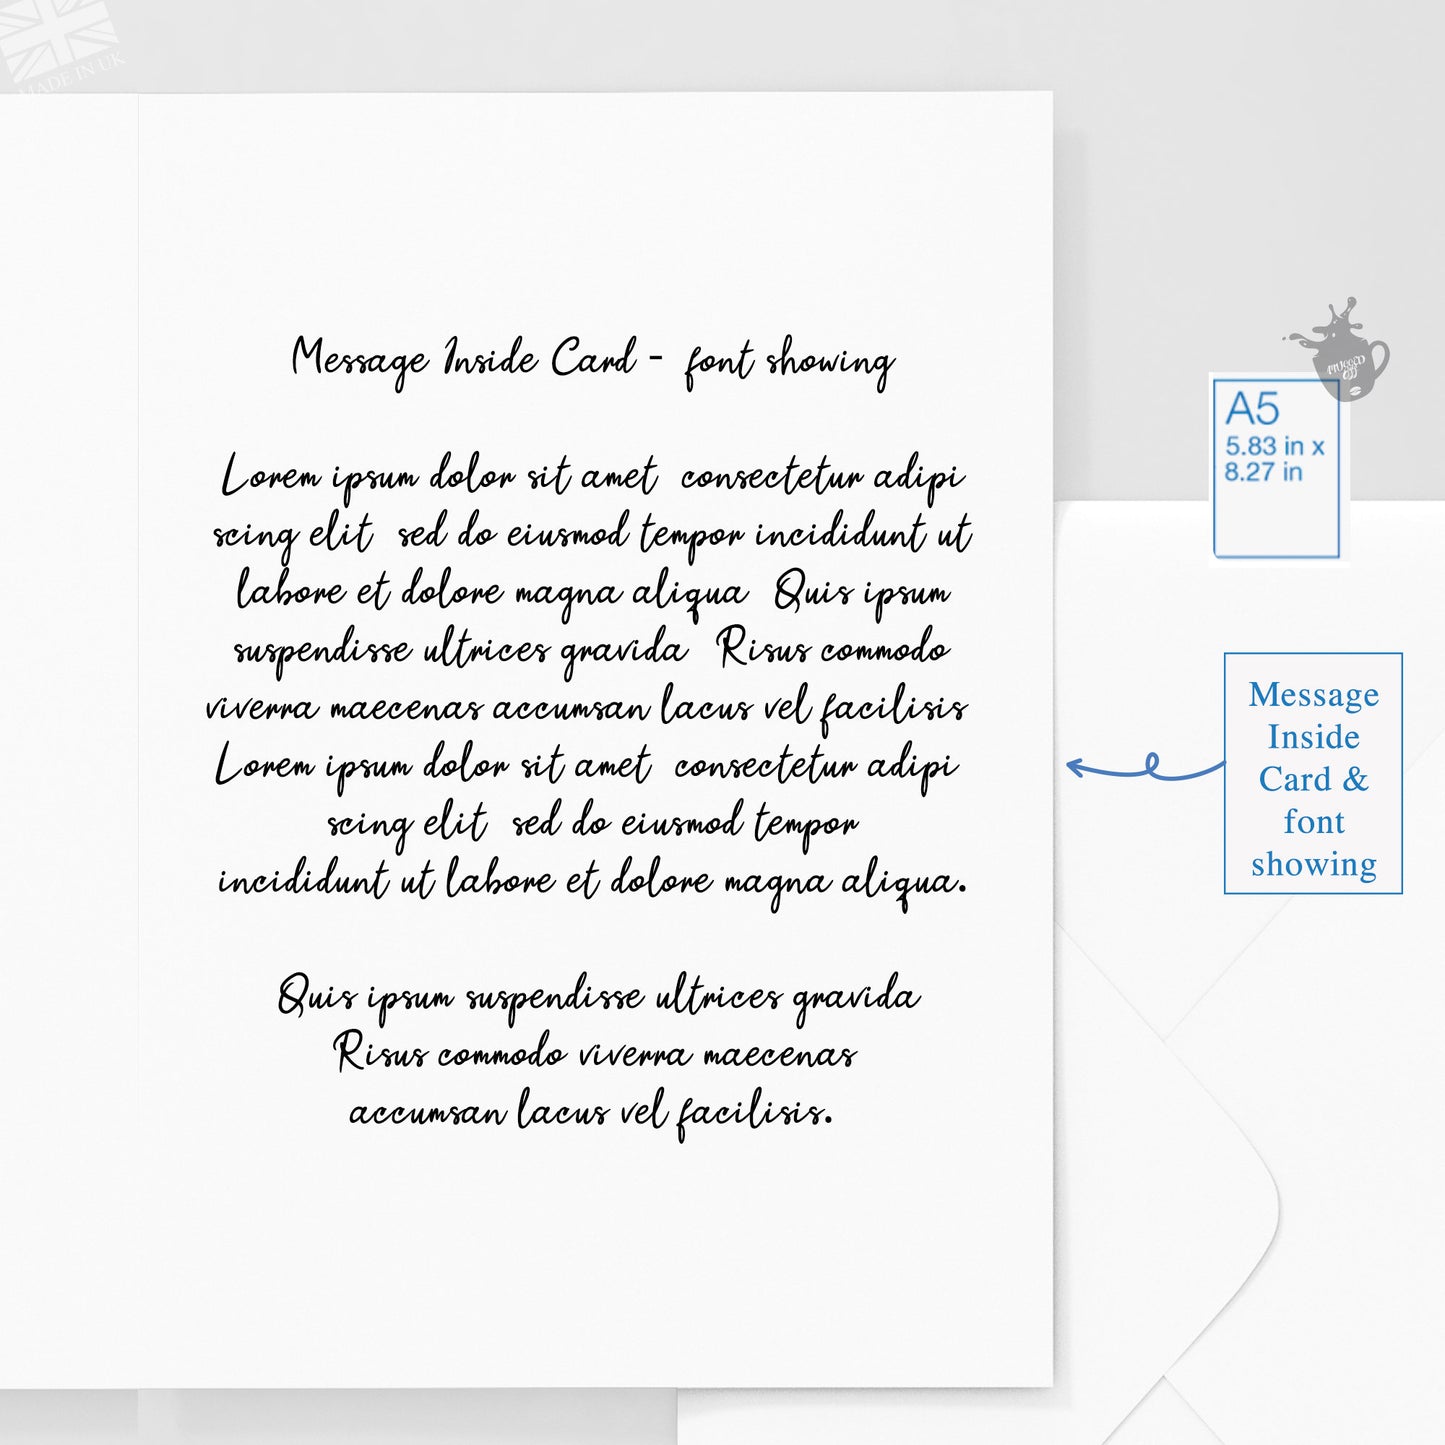 MADE IN UK
Message Inside Card - font showing
Lorem ipsum dolor sit amet consectetur adipi
scing elit sed do eiusmod tempor incididunt ut
labore et dolore magna aliqua Quis ipsum
suspendisse ultrices gravida Risus commodo
viverra maecenas accumsan lacus vel facilisis
Lorem ipsum dolor sit amet consectetur adipi
scing elit sed do eiusmod tempor
incididunt ut labore et dolore magna aliqua.
Quis ipsum suspendisse ultrices gravida
Risus commodo viverra maecenas
accumsan lacus vel facilisis.
MUGGED
OFF
A5
5.83 in x
8.27 in
Message
Inside
Card &
font
showing